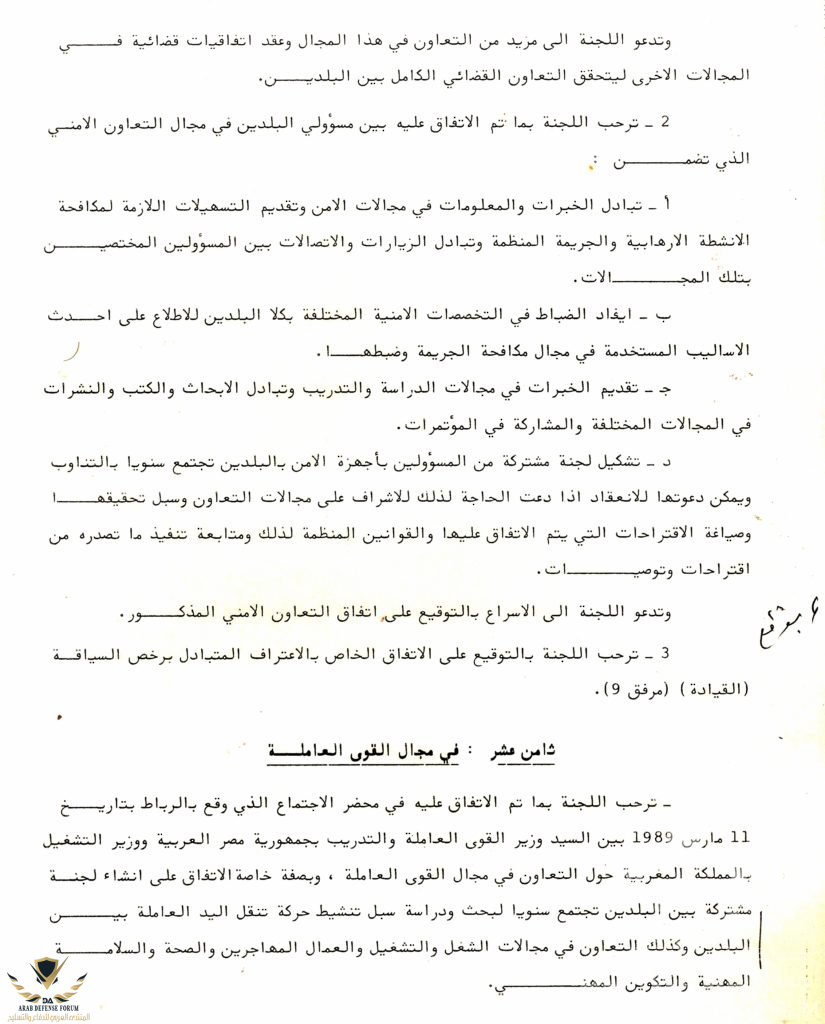 وتدعو اللجنة الى مزيد من التعاون في هذا المجال وعقد اتفاقيات قضائية فـــــي
المجالات الاخرى ليتحقق التعاون القضائي الكامل بين البلديـــــن.
2 ـ ترحب اللجنة بما تم الاتفاق عليه بين مسؤولي البلدين في مجال التعاون الامنـي
الذي تضمـــــــن :
أ ـ تبادل الخبرات والمعلومات في مجالات الامن وتقديم التسهيلات اللازمة لمكافحة
الانشطة الارهابية والجريمة المنظمة وتبادل الزيارات والاتصالات بين المسؤولين المختصيـــــن
بتلك المجـــــــالات.
ب ـ ايفاد الضباط في التخصصات الامنية المختلفة بكلا البلدين للاطلاع على احـــدث
الاساليب المستخدمة في مجال مكافحة الجريمة وضبطهـــــا.
جـ ـ تقديم الخبرات في مجالات الدراسة والتدريب وتبادل الابحاث والكتب والنشرات
في المجالات المختلفة والمشاركة في المؤتمرات.
د ـ تشكيل لجنة مشتركة من المسؤولين بأجهزة الامن بالبلدين تجتمع سنويا بالتناوب
ويمكن دعوتها للانعقاد اذا دعت الحاجة لذلك للاشراف على مجالات التعاون وسبل تحقيقهـــــا
وصياغة الاقتراحات التي يتم الاتفاق عليها والقوانين المنظمة لذلك ومتابعة تنفيذ ما تصدره من
اقتراحات وتوصيـــــــات.
وتدعو اللجنة الى الاسراع بالتوقيع على اتفاق التعاون الامني المذكـــــور.
3 ـ ترحب اللجنة بالتوقيع على الاتفاق الخاص بالاعتراف المتبادل برخص السياقـــة
(القيادة) (مرفق 9).
ثامن عشر : في مجال القوى العاملـــــة
ـ ترحب اللجنة بما تم الاتفاق عليه في محضر الاجتماع الذي وقع بالرباط بتاريـــــخ
11 مارس 1989 بين السيد وزير القوى العاملة والتدريب بجمهورية مصر العربية ووزير التشغيل
بالمملكة المغربية حول التعاون في مجال القوى العاملة ، وبصفة خاصة الاتفاق على انشاء لجنـــة
مشتركة بين البلدين تجتمع سنويا لبحث ودراسة سبل تنشيط حركة تنقل اليد العاملة بيـــــن
البلدين وكذلك التعاون في مجالات الشغل والتشغيل والعمال المهاجرين والصحة والسلامـــــة
المهنية والتكوين المهنـــــــي.
DA
ARAB DEFENSE FORUM
المنتدى العربي للدفاع والتسليح